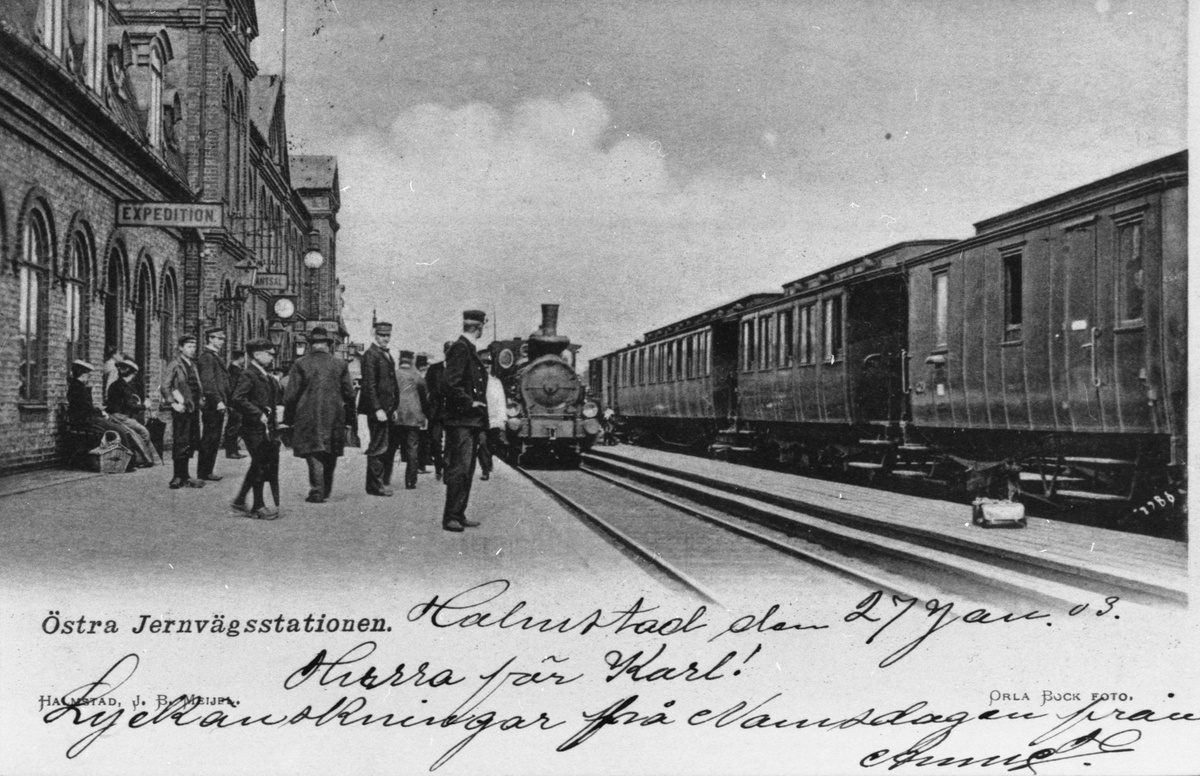 EXPEDITION.
Östra Jernvägsstationen. Halmstad den 27 Jan. 03.
Hurra för Karl!
HALMSTAD, J. B. MEIJEL. ORLA BOCK FOTO.
Lyckönskningar på Namsdagen från